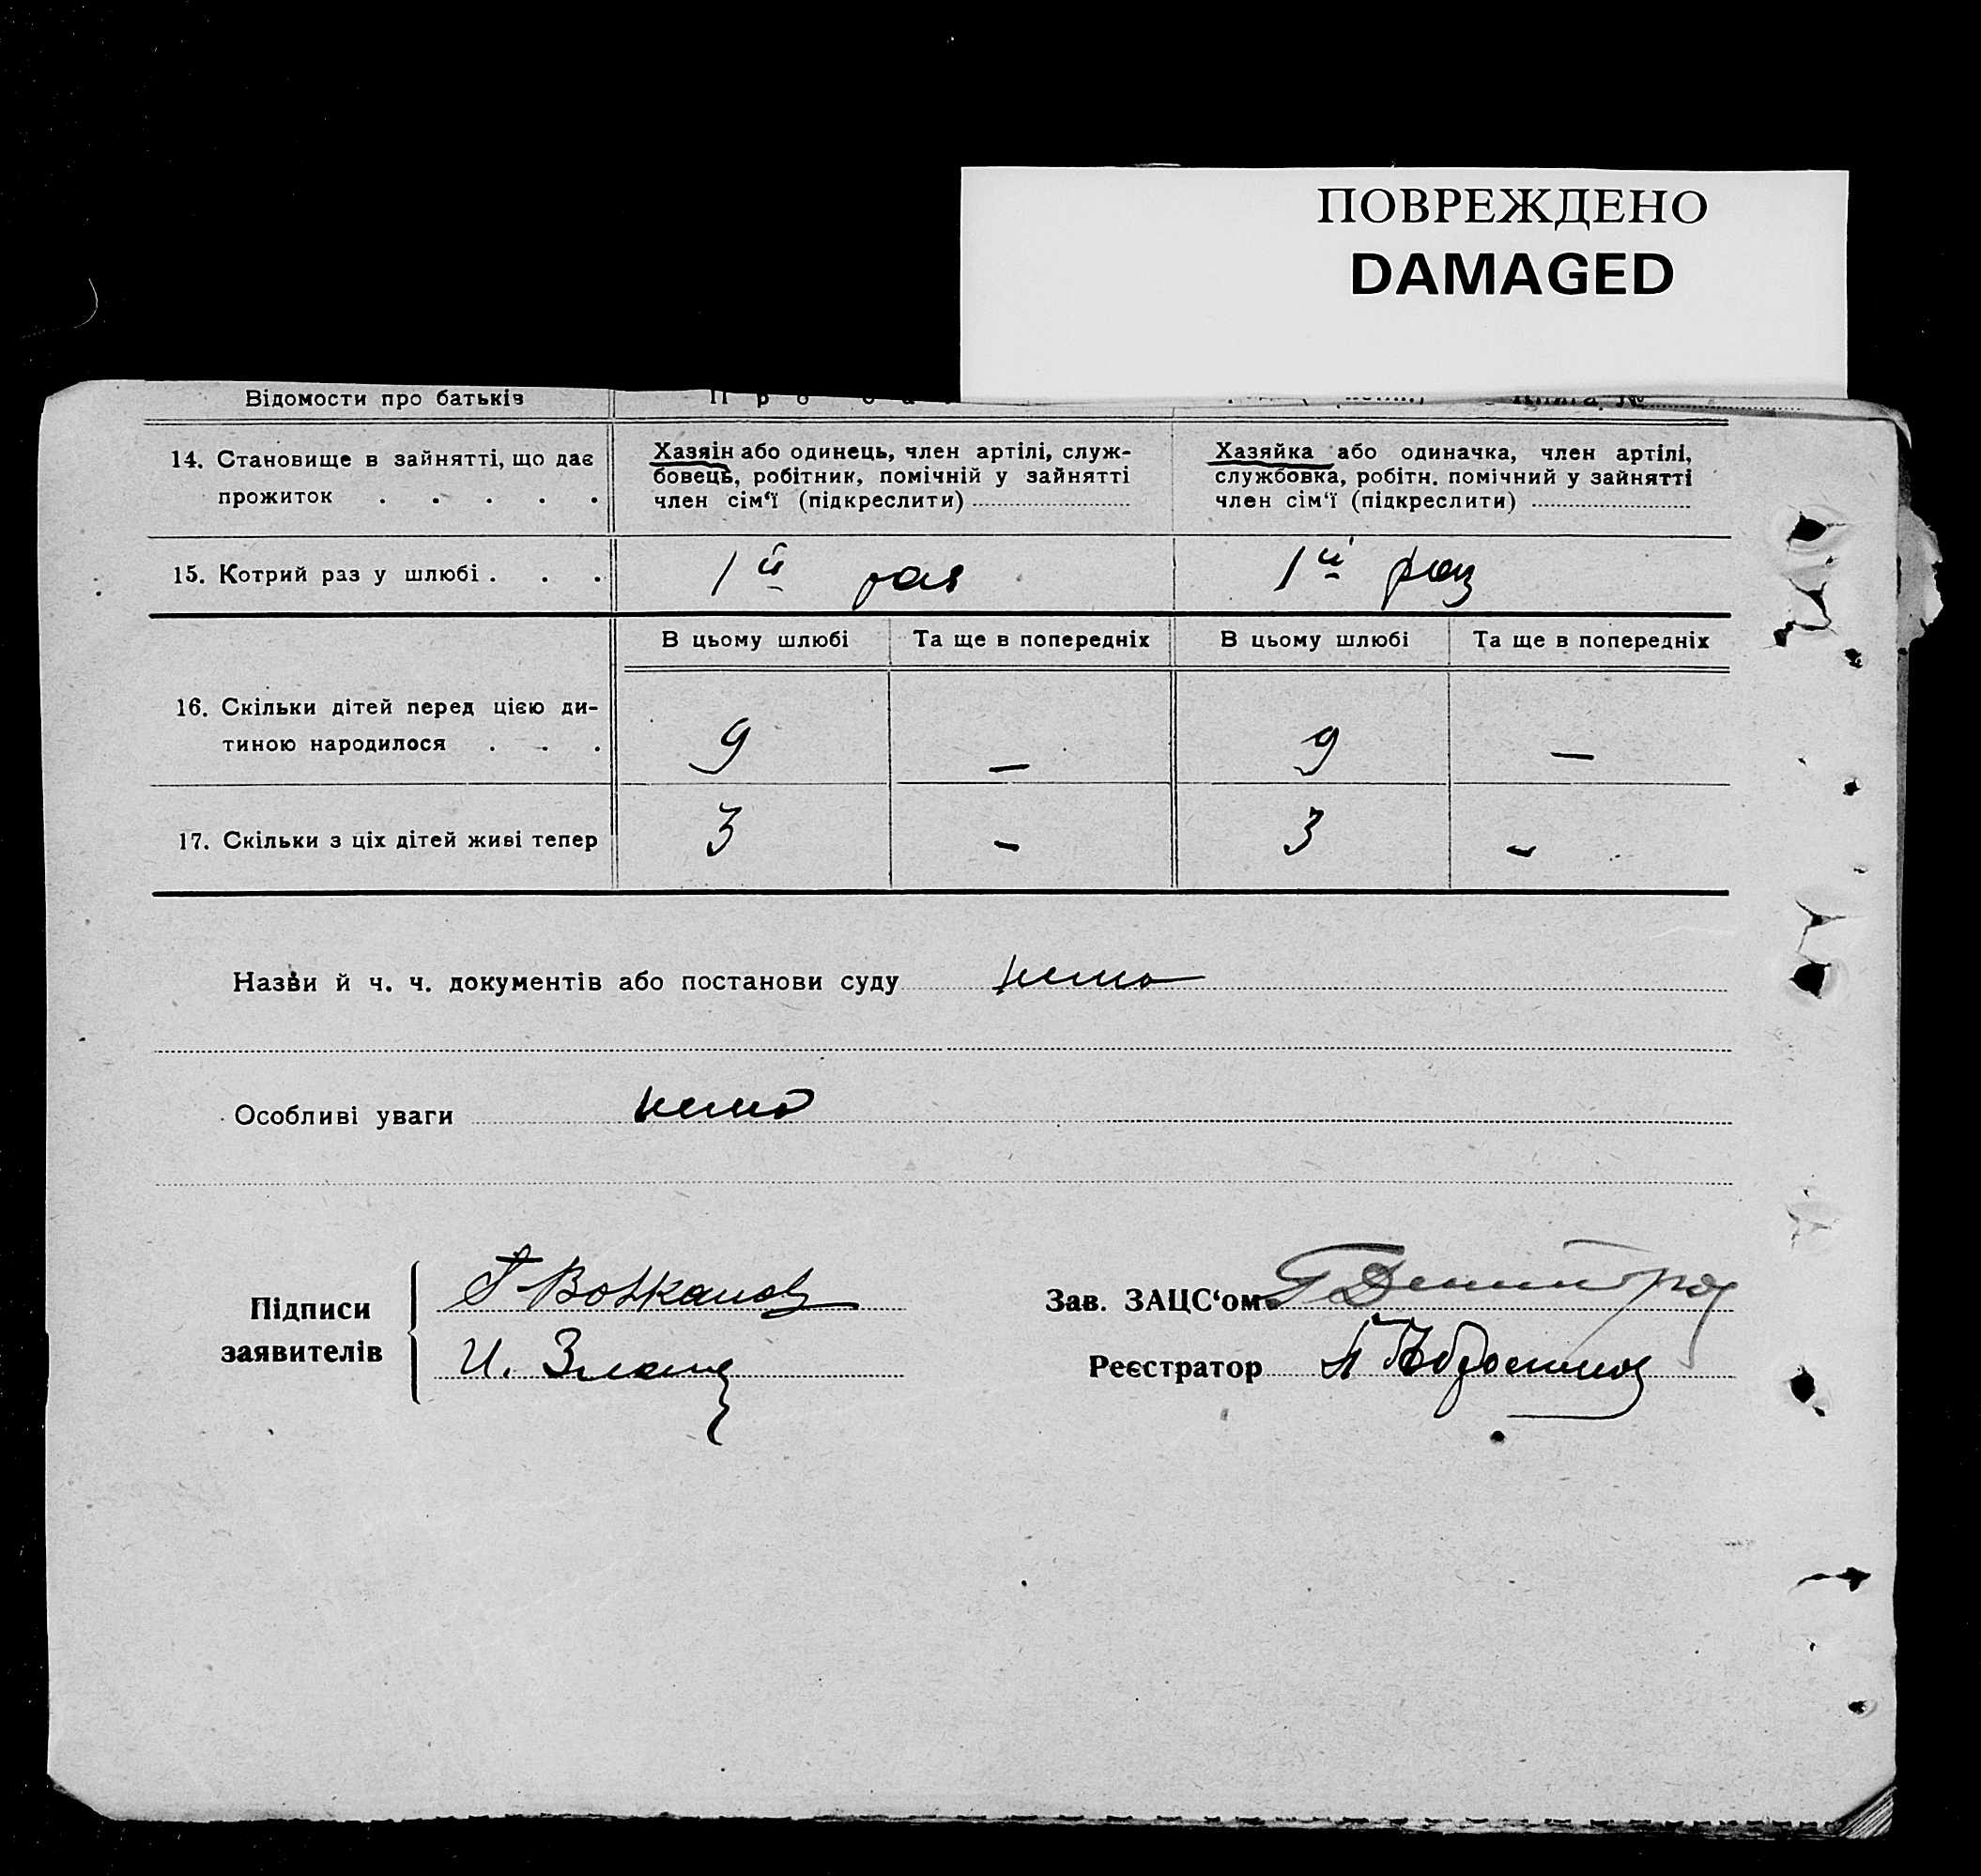 ПОВРЕЖДЕНО
DAMAGED
Відомости про батьків
14. Становище в зайнятті, що дає прожиток . . . . .
Хазяін або одинець, член артілі, служ-
бовець, робітник, помічній у зайнятті
член сім‘ї (підкреслити)
Хазяйка або одиначка, член артілі,
службовка, робітн. помічний у зайнятті
член сім‘ї (підкреслити)
15. Котрий раз у шлюбі . . . 1й раз 1й раз
В цьому шлюбі Та ще в попередніх В цьому шлюбі Та ще в попередніх
16. Скільки дітей перед цією ди-
тиною народилося . . . 9 — 9 —
17. Скільки з ціх дітей живі тепер 3 - 3 -
Назви й ч. ч. документів або постанови суду нема
Особливі уваги нема
Підписи
заявителів
И.
Зав. ЗАЦС‘ом
Реєстратор